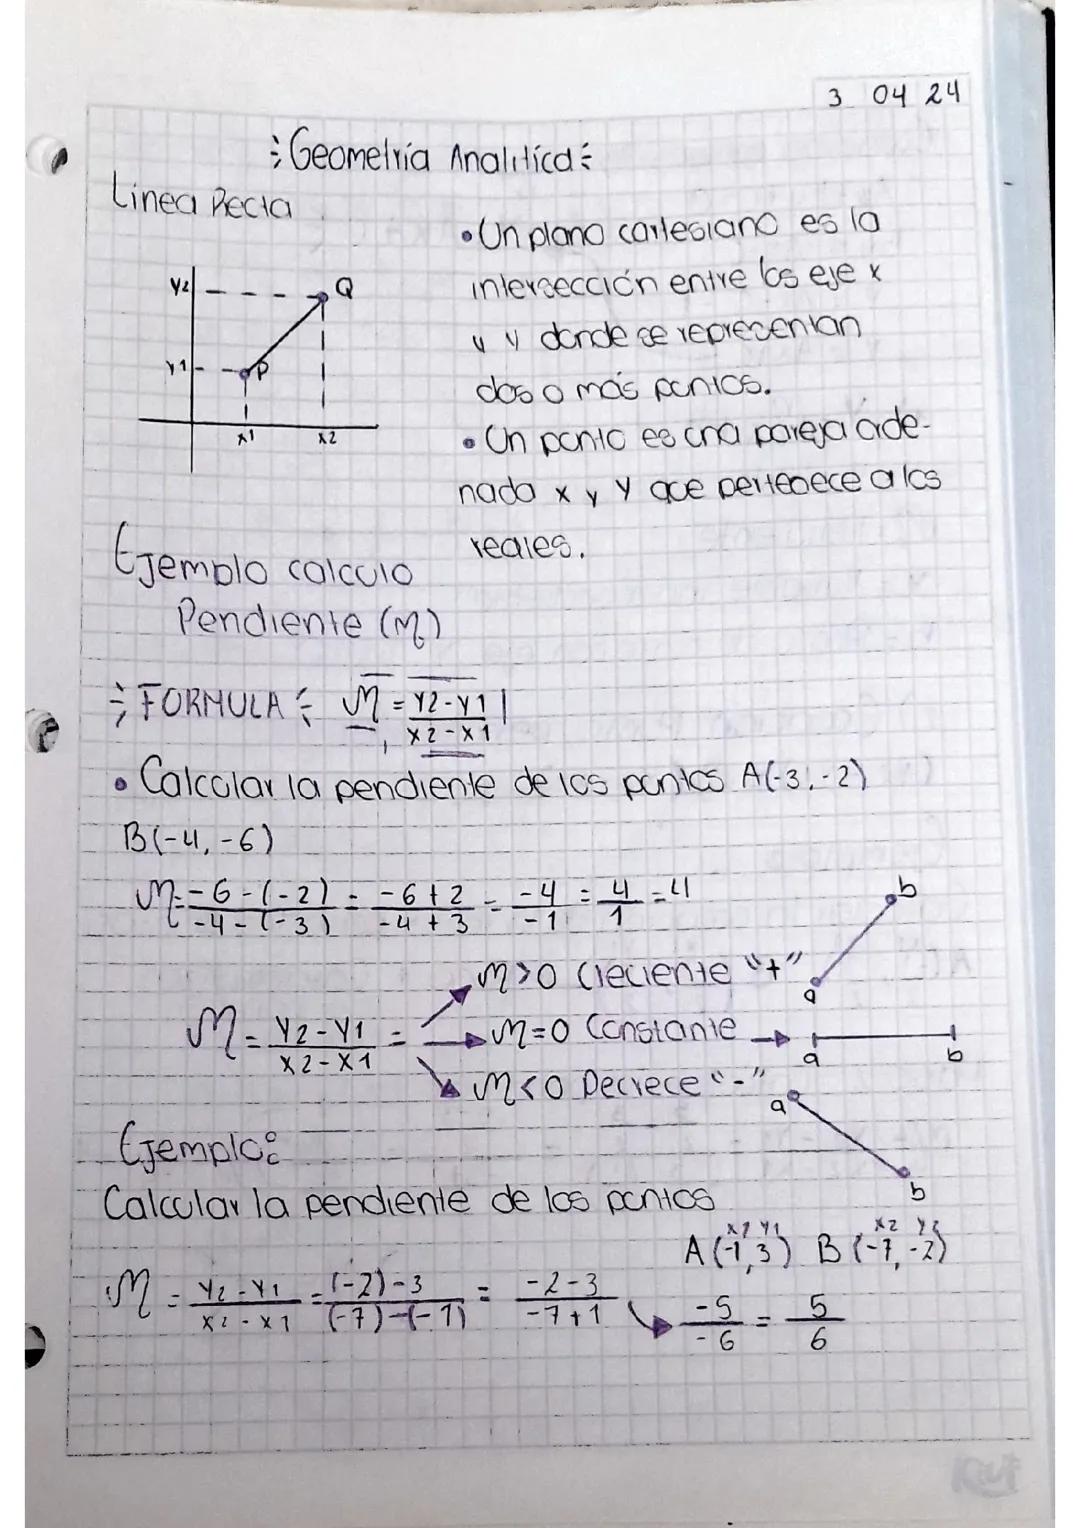 3 04 24
Geometría Analítica
Linea Recta
• Un plano cartesiano es la
intersección entre los eje x
y y donde se representan
dos o más puntos.
• Un punto es una pareja orde-
nada x y y que pertenece a los
reales.
y2 Q
y1 P
x1 x2
Ejemplo calculo
Pendiente (m)
FORMULA m = y2-y1 / x2-x1
• Calcular la pendiente de los puntos A(-3,-2)
B(-4,-6)
m = -6-(-2) / -4-(-3) = -6+2 / -4+3 = -4 / -1 = 4 / 1 = 4
b
a
m = y2-y1 / x2-x1 =
m>0 Creciente "+"
m=0 Constante
a b
m<0 Decrece "-"
a
b
Ejemplo:
Calcular la pendiente de los puntos
x1 y1 x2 y2
A(-1,3) B(-7,-2)
m = y2-y1 / x2-x1 = (-2)-3 / (-7)-(-1) = -2-3 / -7+1 -5 / -6 = 5 / 6